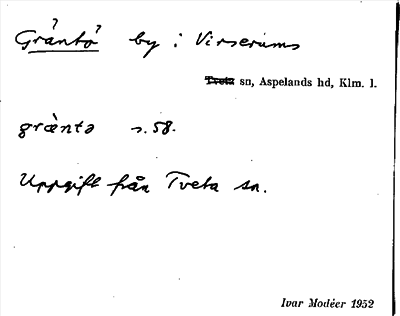 Gräntö by i Virserums
Tveta sn, Aspelands hd, Klm. l.
grǟ̀ntə s. 58.
Uppgift från Tveta sn.
Ivar Modéer 1952